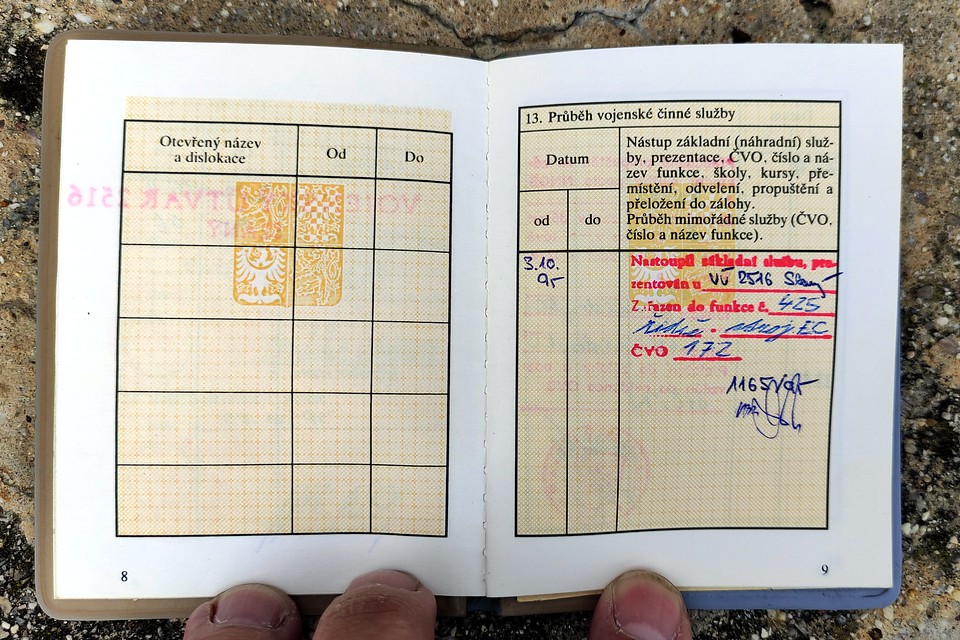 Otevřený název
a dislokace
Od
Do
VOJENSKÝ ÚTVAR 2516
8
13. Průběh vojenské činné služby
Datum
od
do
Nástup základní (náhradní) služ-
by, prezentace, ČVO, číslo a ná-
zev funkce, školy, kursy, pře-
místění, odvelení, propuštění a
přeložení do zálohy.
Průběh mimořádné služby (ČVO,
číslo a název funkce).
3.10.
95
Nastoupil základní službu, pre-
zentován u VÚ 2516 Slaný
Zařazen do funkce č. 425
řidič - zdroj EC
ČVO 172
9